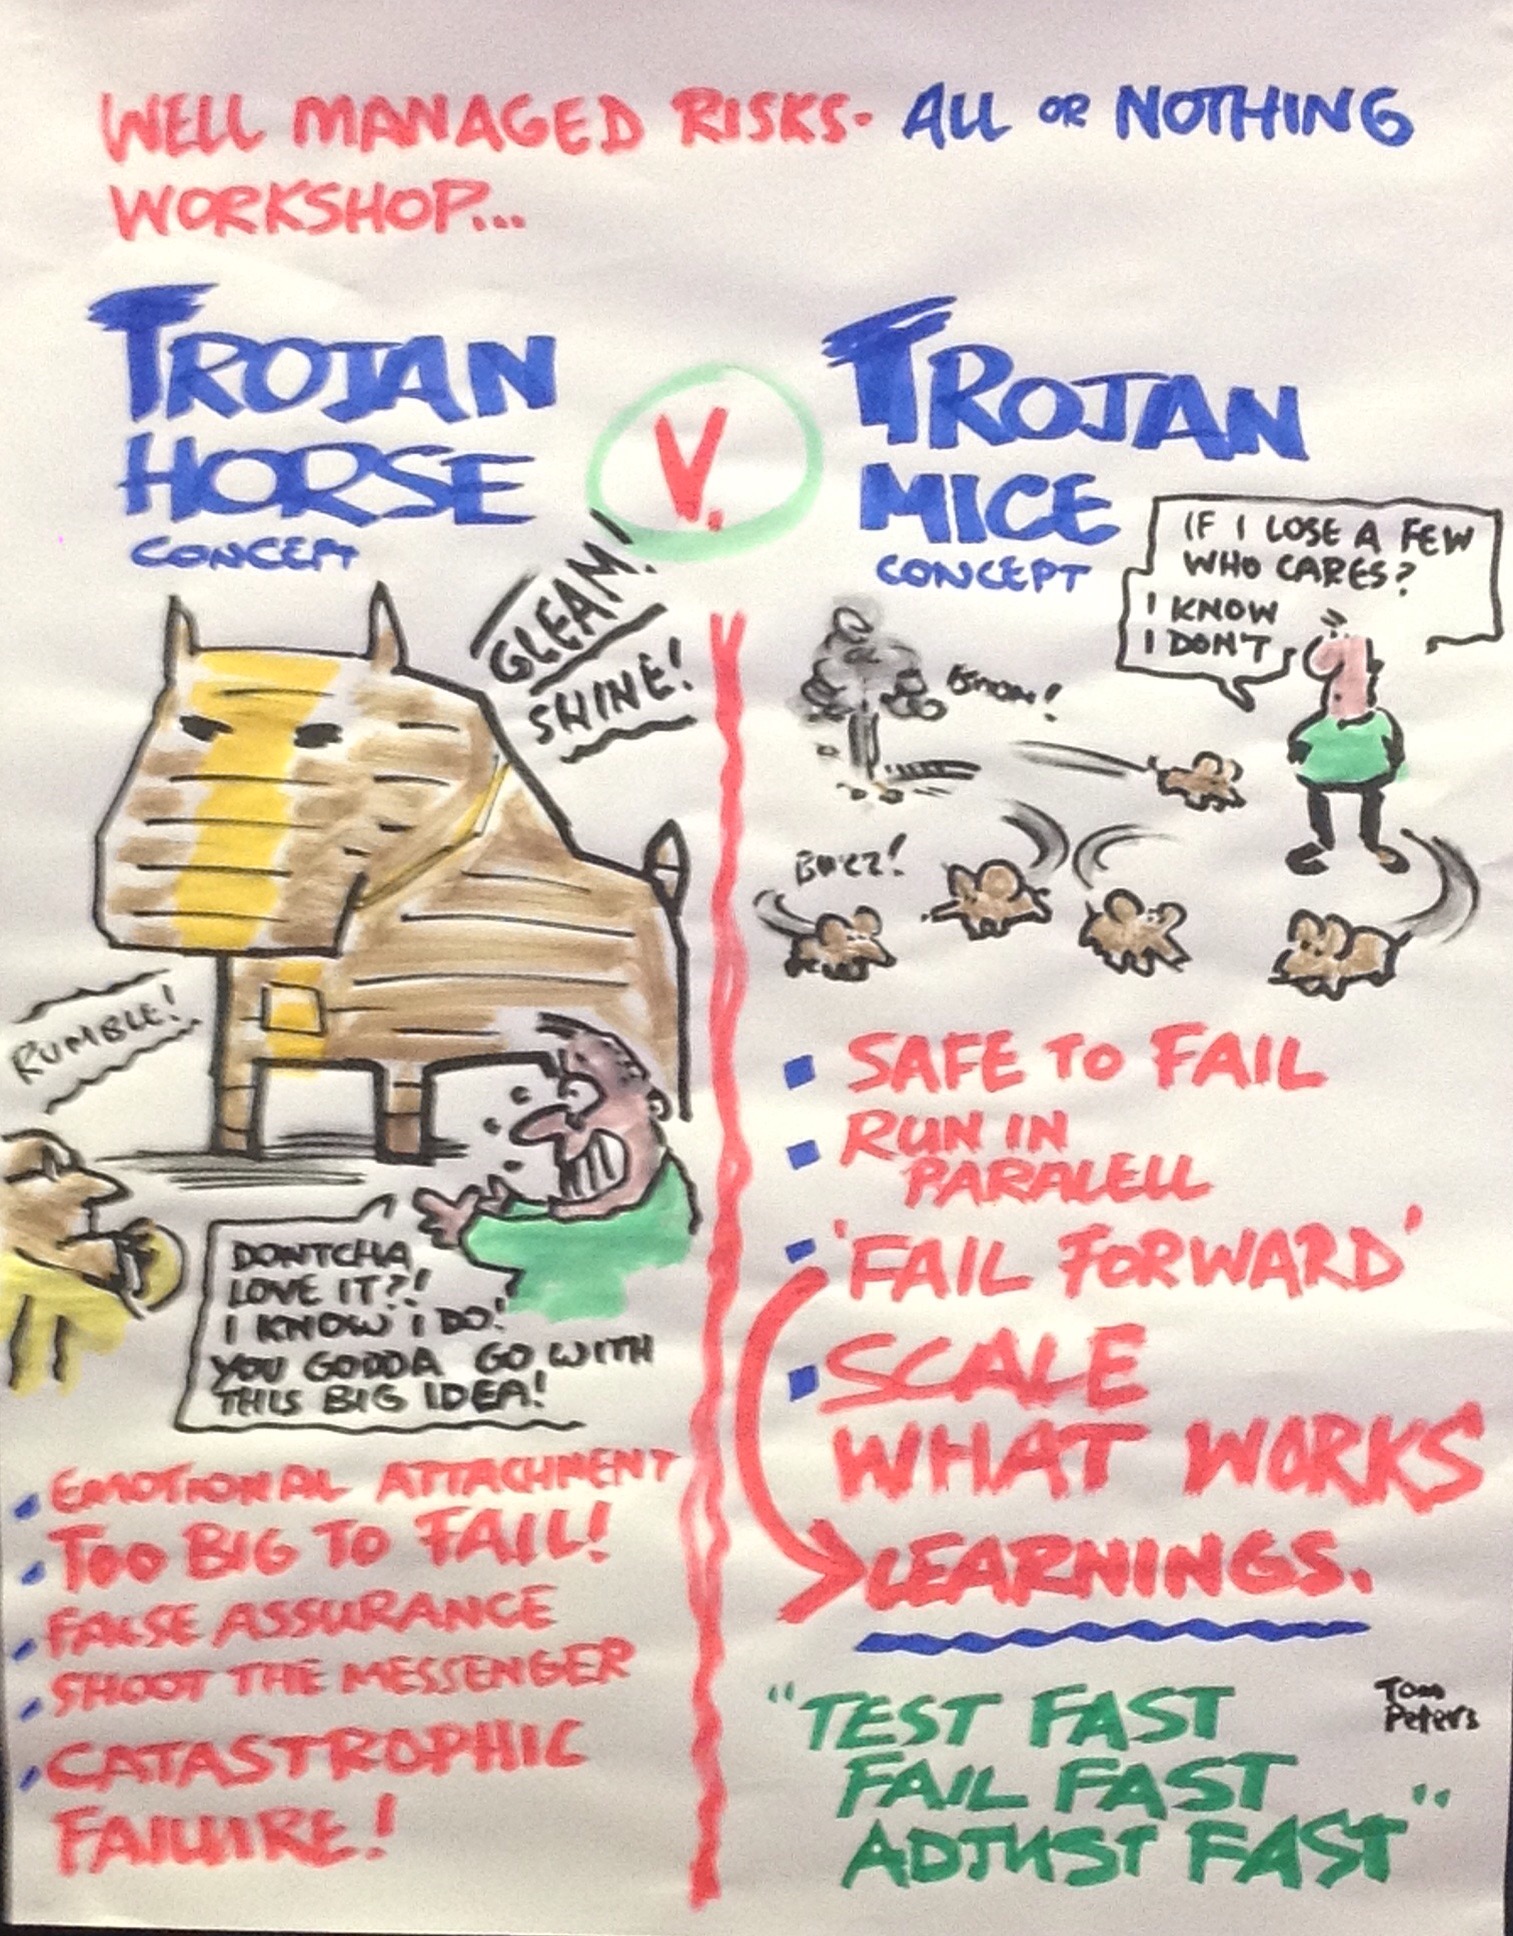 WELL MANAGED RISKS. ALL OR NOTHING
WORKSHOP...
TROJAN
HORSE
CONCEPT
V.
TROJAN
MICE
CONCEPT
GLEAM!
SHINE!
RUMBLE!
DONTCHA
LOVE IT?!
I KNOW I DO!
YOU GODDA GO WITH
THIS BIG IDEA!
EMOTIONAL ATTACHMENT
TOO BIG TO FAIL!
FALSE ASSURANCE
SHOOT THE MESSENGER
CATASTROPHIC
FAILUIRE!
IF I LOSE A FEW
WHO CARES?
I KNOW
I DON'T
BOOM!
SAFE TO FAIL
RUN IN
PARALELL
'FAIL FORWARD'
SCALE
WHAT WORKS
LEARNINGS.
"TEST FAST
FAIL FAST
ADJUST FAST"
Tom
Peters